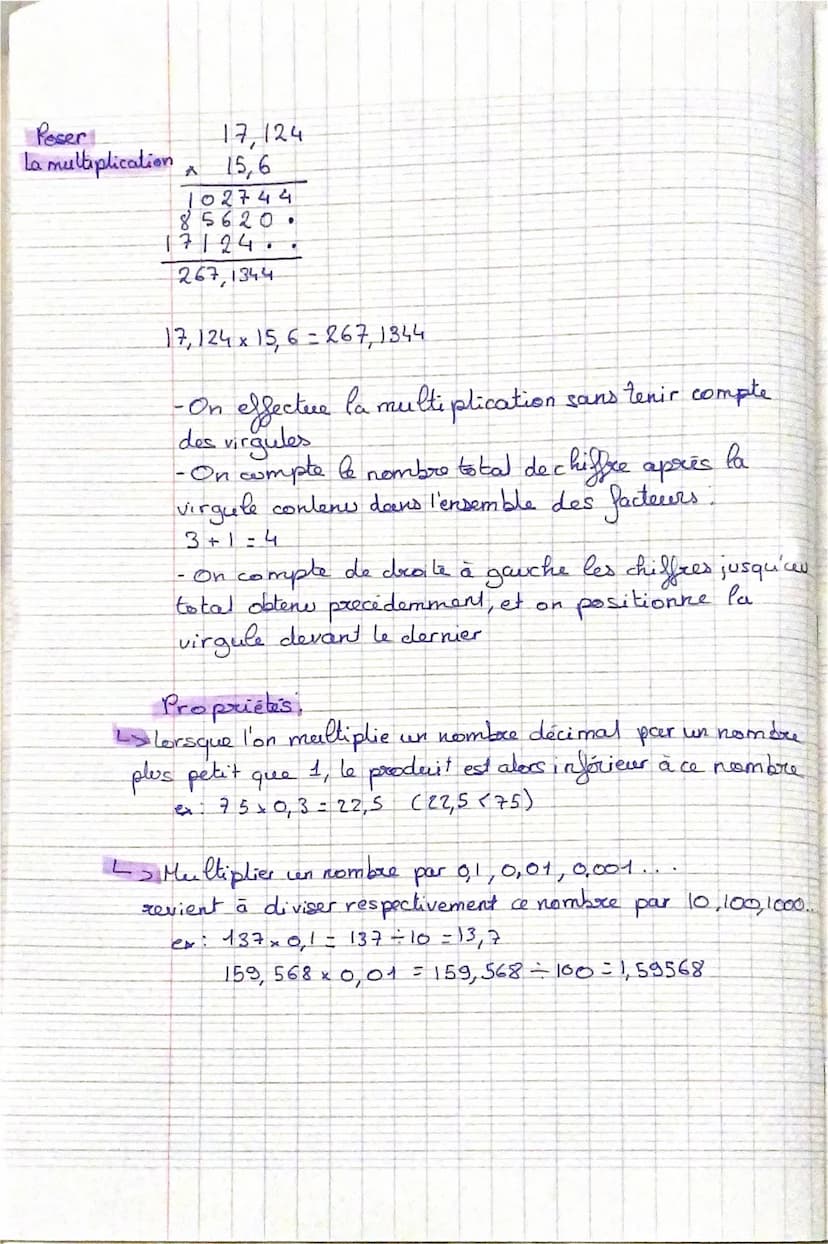 Poser 17,124
la multiplication x 15,6
102744
85620.
17124..
267,1344
17,124 x 15,6 = 267,1344
- On effectue la multiplication sans tenir compte
des virgules
- On compte le nombre total de chiffre après la
virgule contenu dans l'ensemble des facteurs.
3 + 1 = 4
- On compte de droite à gauche les chiffres jusqu'au
total obtenu precédemment, et on positionne la
virgule devant le dernier
Propriétés:
↳ lorsque l'on multiplie un nombre décimal par un nombre
plus petit que 1, le produit est alors inférieur à ce nombre
ex: 75 x 0,3 = 22,5 (22,5 < 75)
↳ Multiplier un nombre par 0,1, 0,01, 0,001...
revient à diviser respectivement ce nombre par 10,100,1000...
ex: 137 x 0,1 = 137 ÷ 10 = 13,7
159,568 x 0,01 = 159,568 ÷ 100 = 1,59568